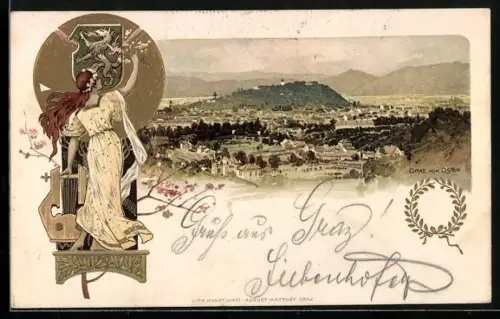 GRAZ VON OSTEN
Gruss aus Graz!
Liebenhofer
LITH. KUNST-ANST. AUGUST MATTHEY, GRAZ